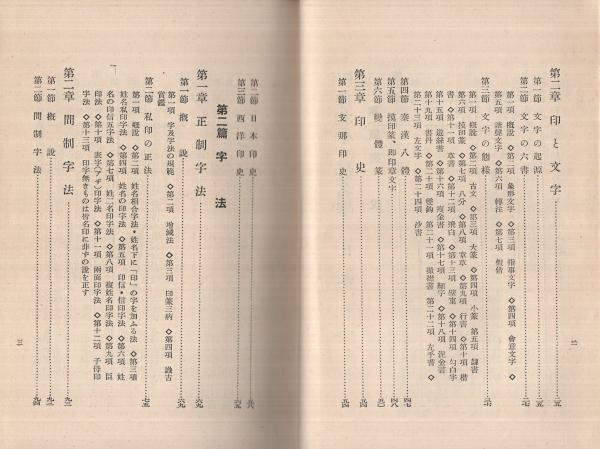 第二章 印と文字
第一節 文字の起源
第二節 文字の六書
第一項 概說 ◇第二項 象形文字 ◇第三項 指事文字 ◇第四項 會意文字 ◇
第五項 諧聲文字 ◇第六項 轉注 ◇第七項 假借
第三節 文字の態樣
第一項 概說 ◇第二項 古文 ◇第三項 大篆 ◇第四項 小篆 第五項 隷書
◇第六項 摸印篆 ◇第七項 八分 ◇第八項 章草 ◇第九項 行書 ◇第十項 楷
書 ◇第十一項 草書 ◇第十二項 飛白 ◇第十三項 ◇第十四項
第十五項 遊絲書 ◇第十六項 瘦金書 ◇第十七項 細字 ◇第十八項 泥金書
第十九項 書丹 ◇第二十項 雙鉤 第二十一項 第二十二項 左手書 ◇
第二十三項 左文字 ◇第二十四項 沙書
第四節 秦漢八體
第五節 摸印篆、即印章文字
第六節 變體篆
第三章 印史
第一節 支那印史
二
第二節 日本印史
第三節 西洋印史
第二篇 字法
第一章 正制字法
第一節 概說
第一項 字及字法の規範 ◇第二項 增減法 ◇第三項 印篆三病 ◇第四項 識古
賞鑑
第二節 私印の正法
第一項 概說 ◇第二項 姓名相合字法・姓名下に「印」の字を加ふる法 ◇第三項
姓名私印字法 ◇第四項 姓名の印字法 ◇第五項 印信・信印字法 ◇第六項 姓
名の印信五字法 ◇第七項 姓二名印字法 ◇第八項 複姓名印字法 ◇第九項 臣
印法 ◇第十項 表字（アザナ）印字法 ◇第十一項 兩面印字法 ◇第十二項 子母印
字法 ◇第十三項 印字無きものは皆名印に非ずの說を正す
第二章 閒制字法
第一節 概說
第二節 閒制字法
三